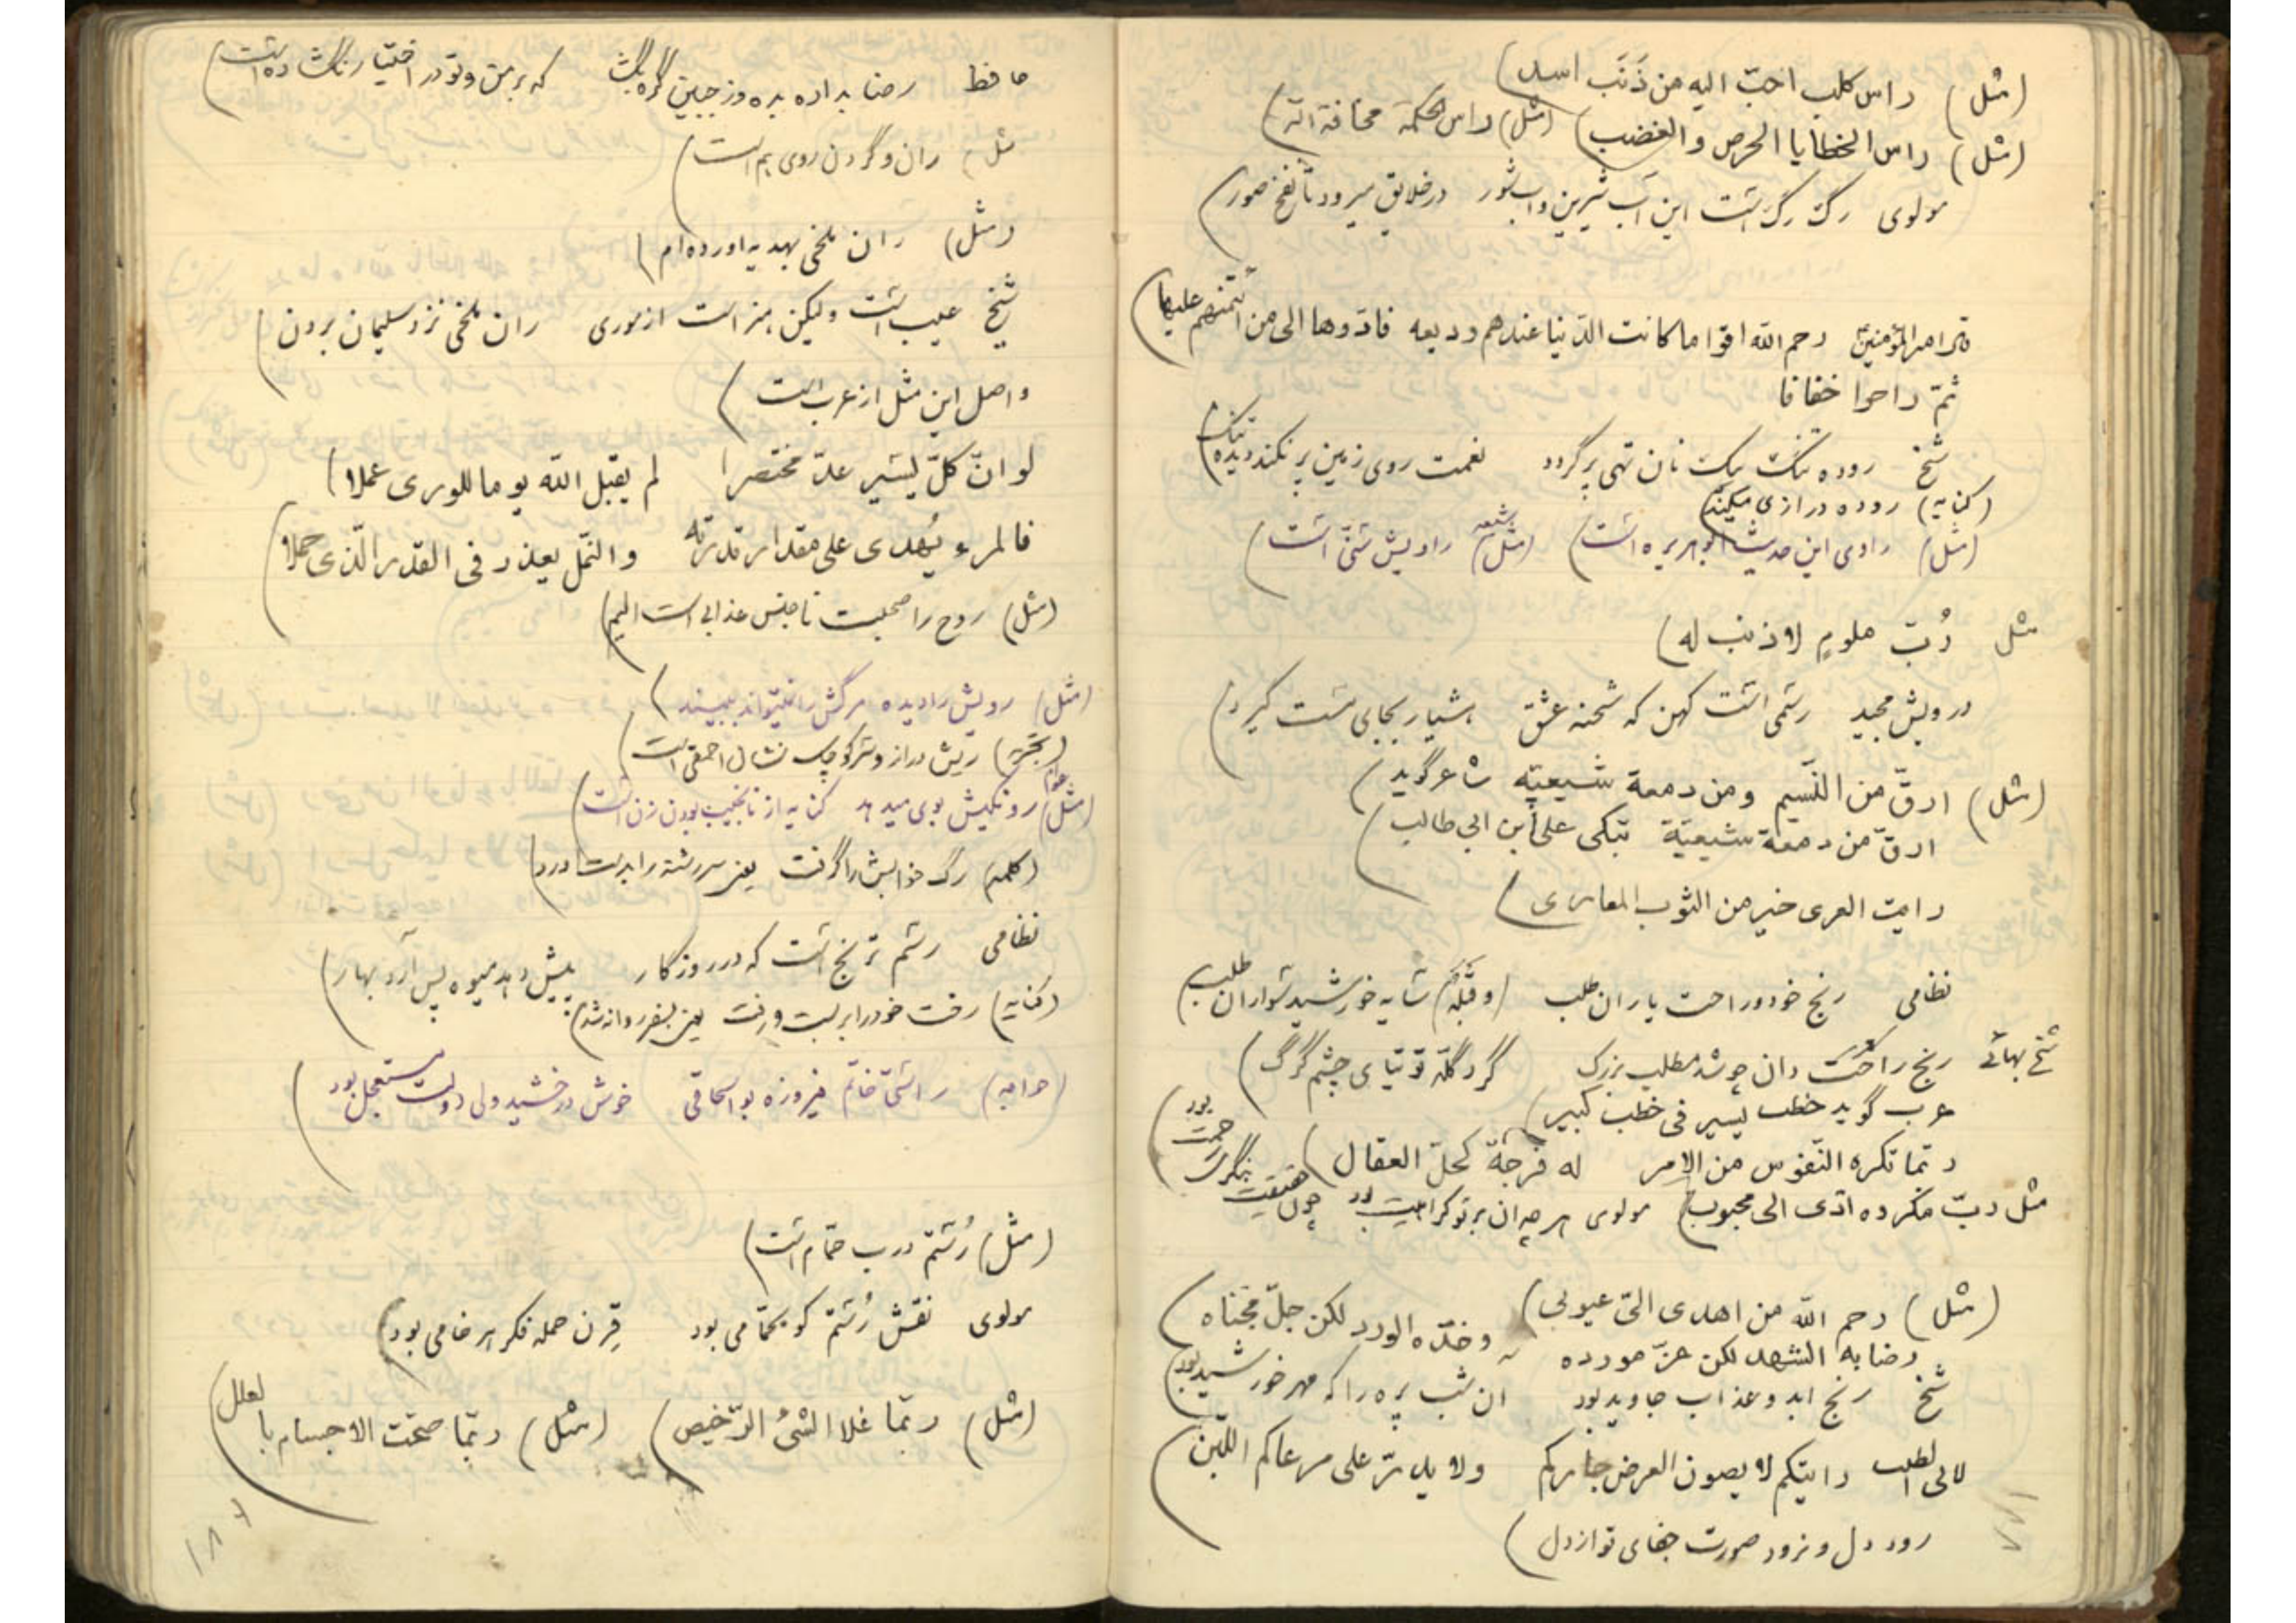 (مثل) راس کلب احبّ الیه من ذَنَب اسد)
(مثل) راس الخطایا الحرص و الغضب) (مثل) راس الحکمة مخافة الله)
مولوی رگ رگ است این آب شیرین و اب شور در خلایق میرود تا نفخ صور)
رحم الله اقواما کانت الدّنیا عندهم ودیعه فادّوها الی من ائتمنهم علیها)
ثمّ راحوا خفافا
شیخ روده تنگ بیک نان تهی پر گردد نعمت روی زمین پر نکند دیده تنگ)
(کنایه) روده درازی میکند)
(مثل) راوی این حدیث ابوهریره است) (مثل) راویش سنّی است)
مثل رُبّ ملومٍ لا ذنب له)
درویش مجید رسمی است کهن که شحنه عشق هشیار بجای مست گیرد)
(مثل) ارقّ من النّسیم و من دمعة شیعیّه شاعر گوید)
ارقّ من دمعة شیعیّة تبکی علی ابن ابی طالب)
رایت العری خیر من الثوب المعاری)
نظامی رنج خود و راحت یاران طلب (و قبله) سایه خورشید سواران طلب)
شیخ بهائی رنج راحت دان چو شد مطلب بزرگ گرد گله توتیای چشم گرگ)
عرب گوید خطب یسیر فی خطب کبیر)
ربّما تکره النّفوس من الامر له فرجة کحلّ العقال)
مثل ربّ مکروه ادّی الی محبوب) مولوی هر چه ان بر تو کراهیت بود چون حقیقت بنگری رحمت بود)
(مثل) رحم الله من اهدی الیّ عیوبی)
رضابه الشهد لکن عزّ مورده و خدّه الورد لکن جلّ مجناه)
شیخ رنج ابد و عذاب جاوید بود ان شب پره را که مهر خورشید بود)
رایتکم لا یصون العرض جارکم ولا یدرّ علی مرعاکم اللّبن)
رود دل و نرود صورت جفای تو از دل)
حافظ رضا بداده بده وز جبین گره بگشا که بر من و تو در اختیار نگشاده است)
مثل ران و گردن روی هم است)
(مثل) ران ملخی بهدیه اورده‌ام)
شیخ عیب است ولیکن هنر است از موری ران ملخی نزد سلیمان بردن)
و اصل این مثل از عرب است)
لو انّ کلّ یسیر عدّ مختصرا لم یقبل الله یوما للوری عملا)
فالمرء یُهدی علی مقدار قدرته و النّمل یعذر فی القدر الّذی حملا)
(مثل) روح را صحبت ناجنس عذابی است الیم)
(مثل) رویش را دیده مرگش را نمیتواند ببیند)
(تجربه) ریش دراز و سر کوچک نشان احمقی است)
(مثل عوام) رونگیش بوی میدهد کنایه از نانجیب بودن زن است)
(کلمه) رگ خوابش را گرفت یعنی سر رشته را بدست اورد)
نظامی رسم ترنج است که در روزگار پیش دهد میوه پس آرد بهار)
(کنایه) رخت خود را بربست و رفت یعنی بسفر روانه شد)
(خواجه) راستی خاتم فیروزه بواسحاقی خوش درخشید ولی دولت مستعجل بود)
(مثل) رُستم درب حمّام است)
مولوی نقش رُستم کو بحمّامی بود قِرن حمله فکر هر خامی بود)
(مثل) ربّما غلا الشئ الرّخیص) (مثل) ربّما صحّت الاجسام بالعلل)
۱۸۷